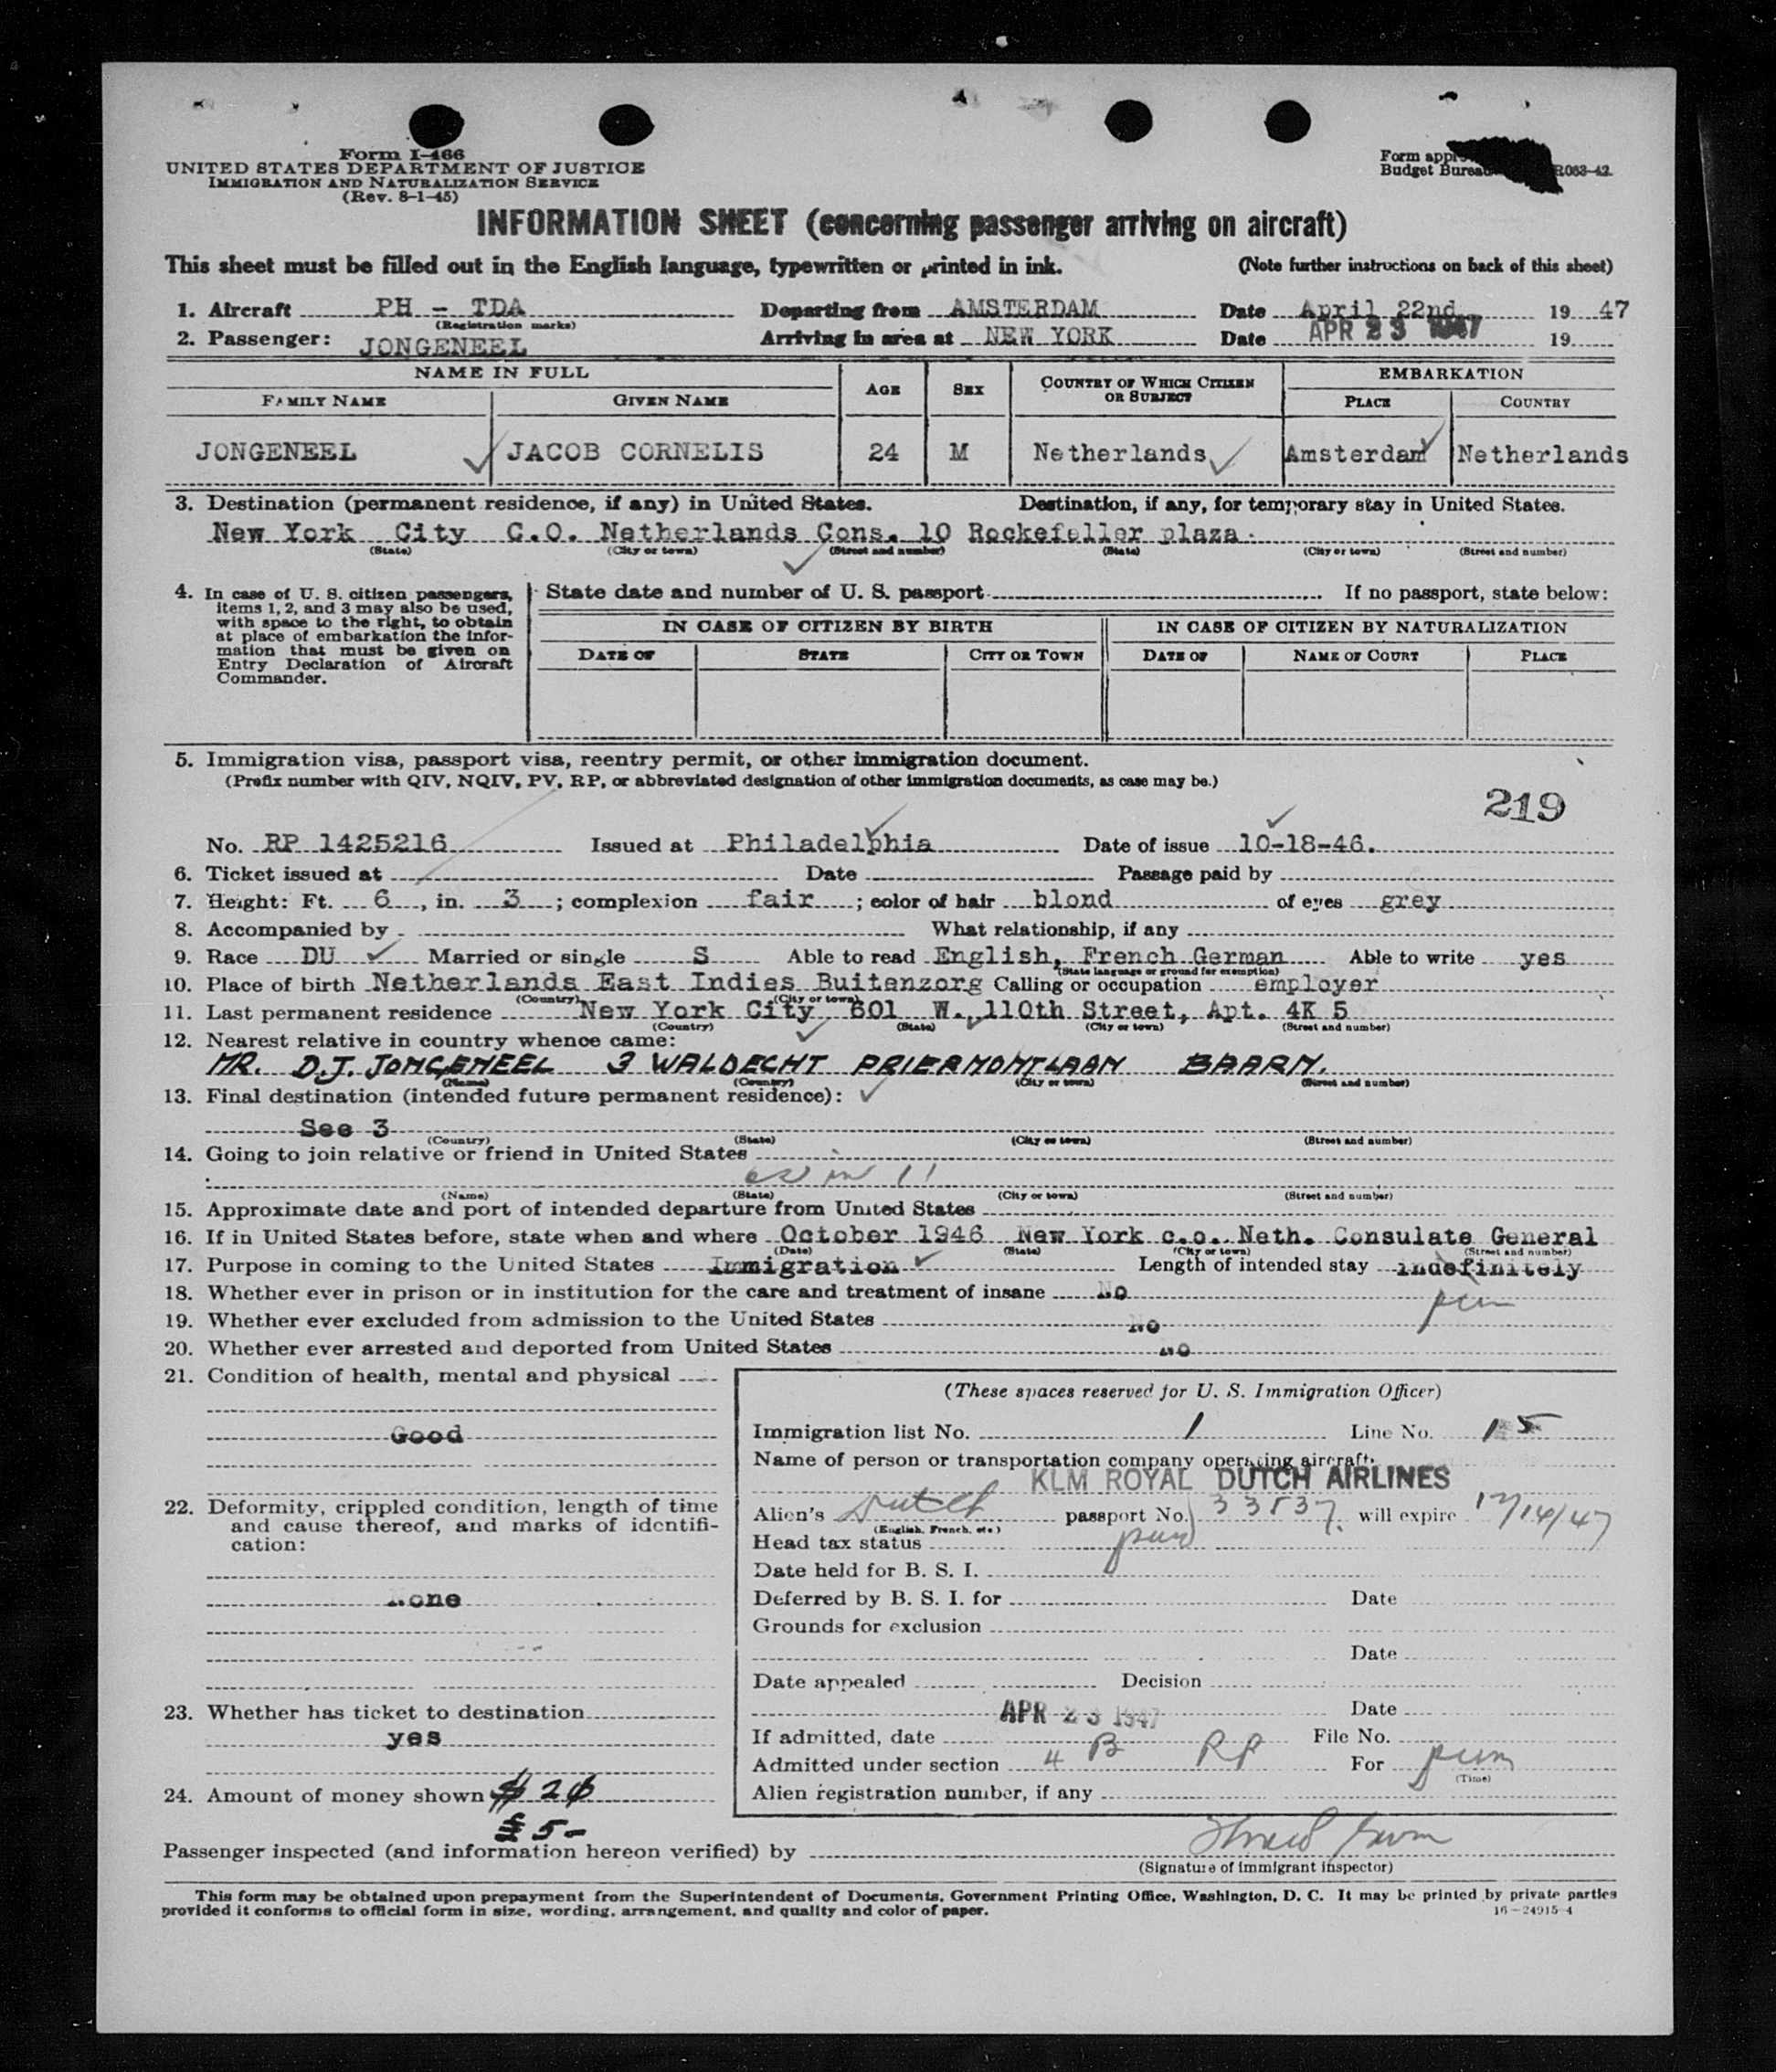 Form I-466
UNITED STATES DEPARTMENT OF JUSTICE
IMMIGRATION AND NATURALIZATION SERVICE
(Rev. 8-1-45)
Form
Budget R063-42.
INFORMATION SHEET (concerning passenger arriving on aircraft)
This sheet must be filled out in the English language, typewritten or printed in ink. (Note further instructions on back of this sheet)
1. Aircraft PH - TDA Departing from AMSTERDAM Date April 22nd 19 47
(Registration marks)
2. Passenger: JONGENEEL Arriving in area at NEW YORK Date APR 23 1947 19
NAME IN FULL AGE SEX COUNTRY OF WHICH CITIZEN OR SUBJECT EMBARKATION
FAMILY NAME GIVEN NAME PLACE COUNTRY
JONGENEEL JACOB CORNELIS 24 M Netherlands Amsterdam Netherlands
3. Destination (permanent residence, if any) in United States. Destination, if any, for temporary stay in United States.
New York City C.O. Netherlands Cons. 10 Rockefeller plaza
(State) (City or town) (Street and number) (State) (City or town) (Street and number)
4. In case of U. S. citizen passengers, items 1, 2, and 3 may also be used, with space to the right, to obtain at place of embarkation the information that must be given on Entry Declaration of Aircraft Commander.
State date and number of U. S. passport If no passport, state below:
IN CASE OF CITIZEN BY BIRTH IN CASE OF CITIZEN BY NATURALIZATION
DATE OF STATE CITY OR TOWN DATE OF NAME OF COURT PLACE
5. Immigration visa, passport visa, reentry permit, or other immigration document.
(Prefix number with QIV, NQIV, PV, RP, or abbreviated designation of other immigration documents, as case may be.)
219
No. RP 1425216 Issued at Philadelphia Date of issue 10-18-46.
6. Ticket issued at Date Passage paid by
7. Height: Ft. 6, in. 3; complexion fair; color of hair blond of eyes grey
8. Accompanied by What relationship, if any
9. Race DU Married or single S Able to read English, French German Able to write yes
(State language or ground for exemption)
10. Place of birth Netherlands East Indies Buitenzorg Calling or occupation employer
(Country) (City or town)
11. Last permanent residence New York City 601 W. 110th Street, Apt. 4K 5
(Country) (State) (City or town) (Street and number)
12. Nearest relative in country whence came:
MR. D.J. JONGENEEL 3 WALDECHT PRIERMONTLAAN BAARN.
(Name) (Country) (City or town) (Street and number)
13. Final destination (intended future permanent residence):
See 3
(Country) (State) (City or town) (Street and number)
14. Going to join relative or friend in United States
in 11
(Name) (State) (City or town) (Street and number)
15. Approximate date and port of intended departure from United States
16. If in United States before, state when and where October 1946 New York c.o. Neth. Consulate General
(Date) (State) (City or town) (Street and number)
17. Purpose in coming to the United States Immigration Length of intended stay indefinitely
18. Whether ever in prison or in institution for the care and treatment of insane No
19. Whether ever excluded from admission to the United States No
20. Whether ever arrested and deported from United States No
21. Condition of health, mental and physical
Good
22. Deformity, crippled condition, length of time and cause thereof, and marks of identification:
None
23. Whether has ticket to destination
yes
24. Amount of money shown $ 20
£ 5-
(These spaces reserved for U. S. Immigration Officer)
Immigration list No. 1 Line No. 15
Name of person or transportation company operating aircraft:
KLM ROYAL DUTCH AIRLINES
Alien's Dutch passport No. 33537. will expire 12/14/47
(English, French, etc.)
Head tax status
Date held for B. S. I.
Deferred by B. S. I. for Date
Grounds for exclusion
Date
Date appealed Decision
APR 23 1947 Date
If admitted, date File No.
Admitted under section 4 B RP For
(Time)
Alien registration number, if any
Passenger inspected (and information hereon verified) by
(Signature of immigrant inspector)
This form may be obtained upon prepayment from the Superintendent of Documents, Government Printing Office, Washington, D. C. It may be printed by private parties
provided it conforms to official form in size, wording, arrangement, and quality and color of paper. 16-24915-4